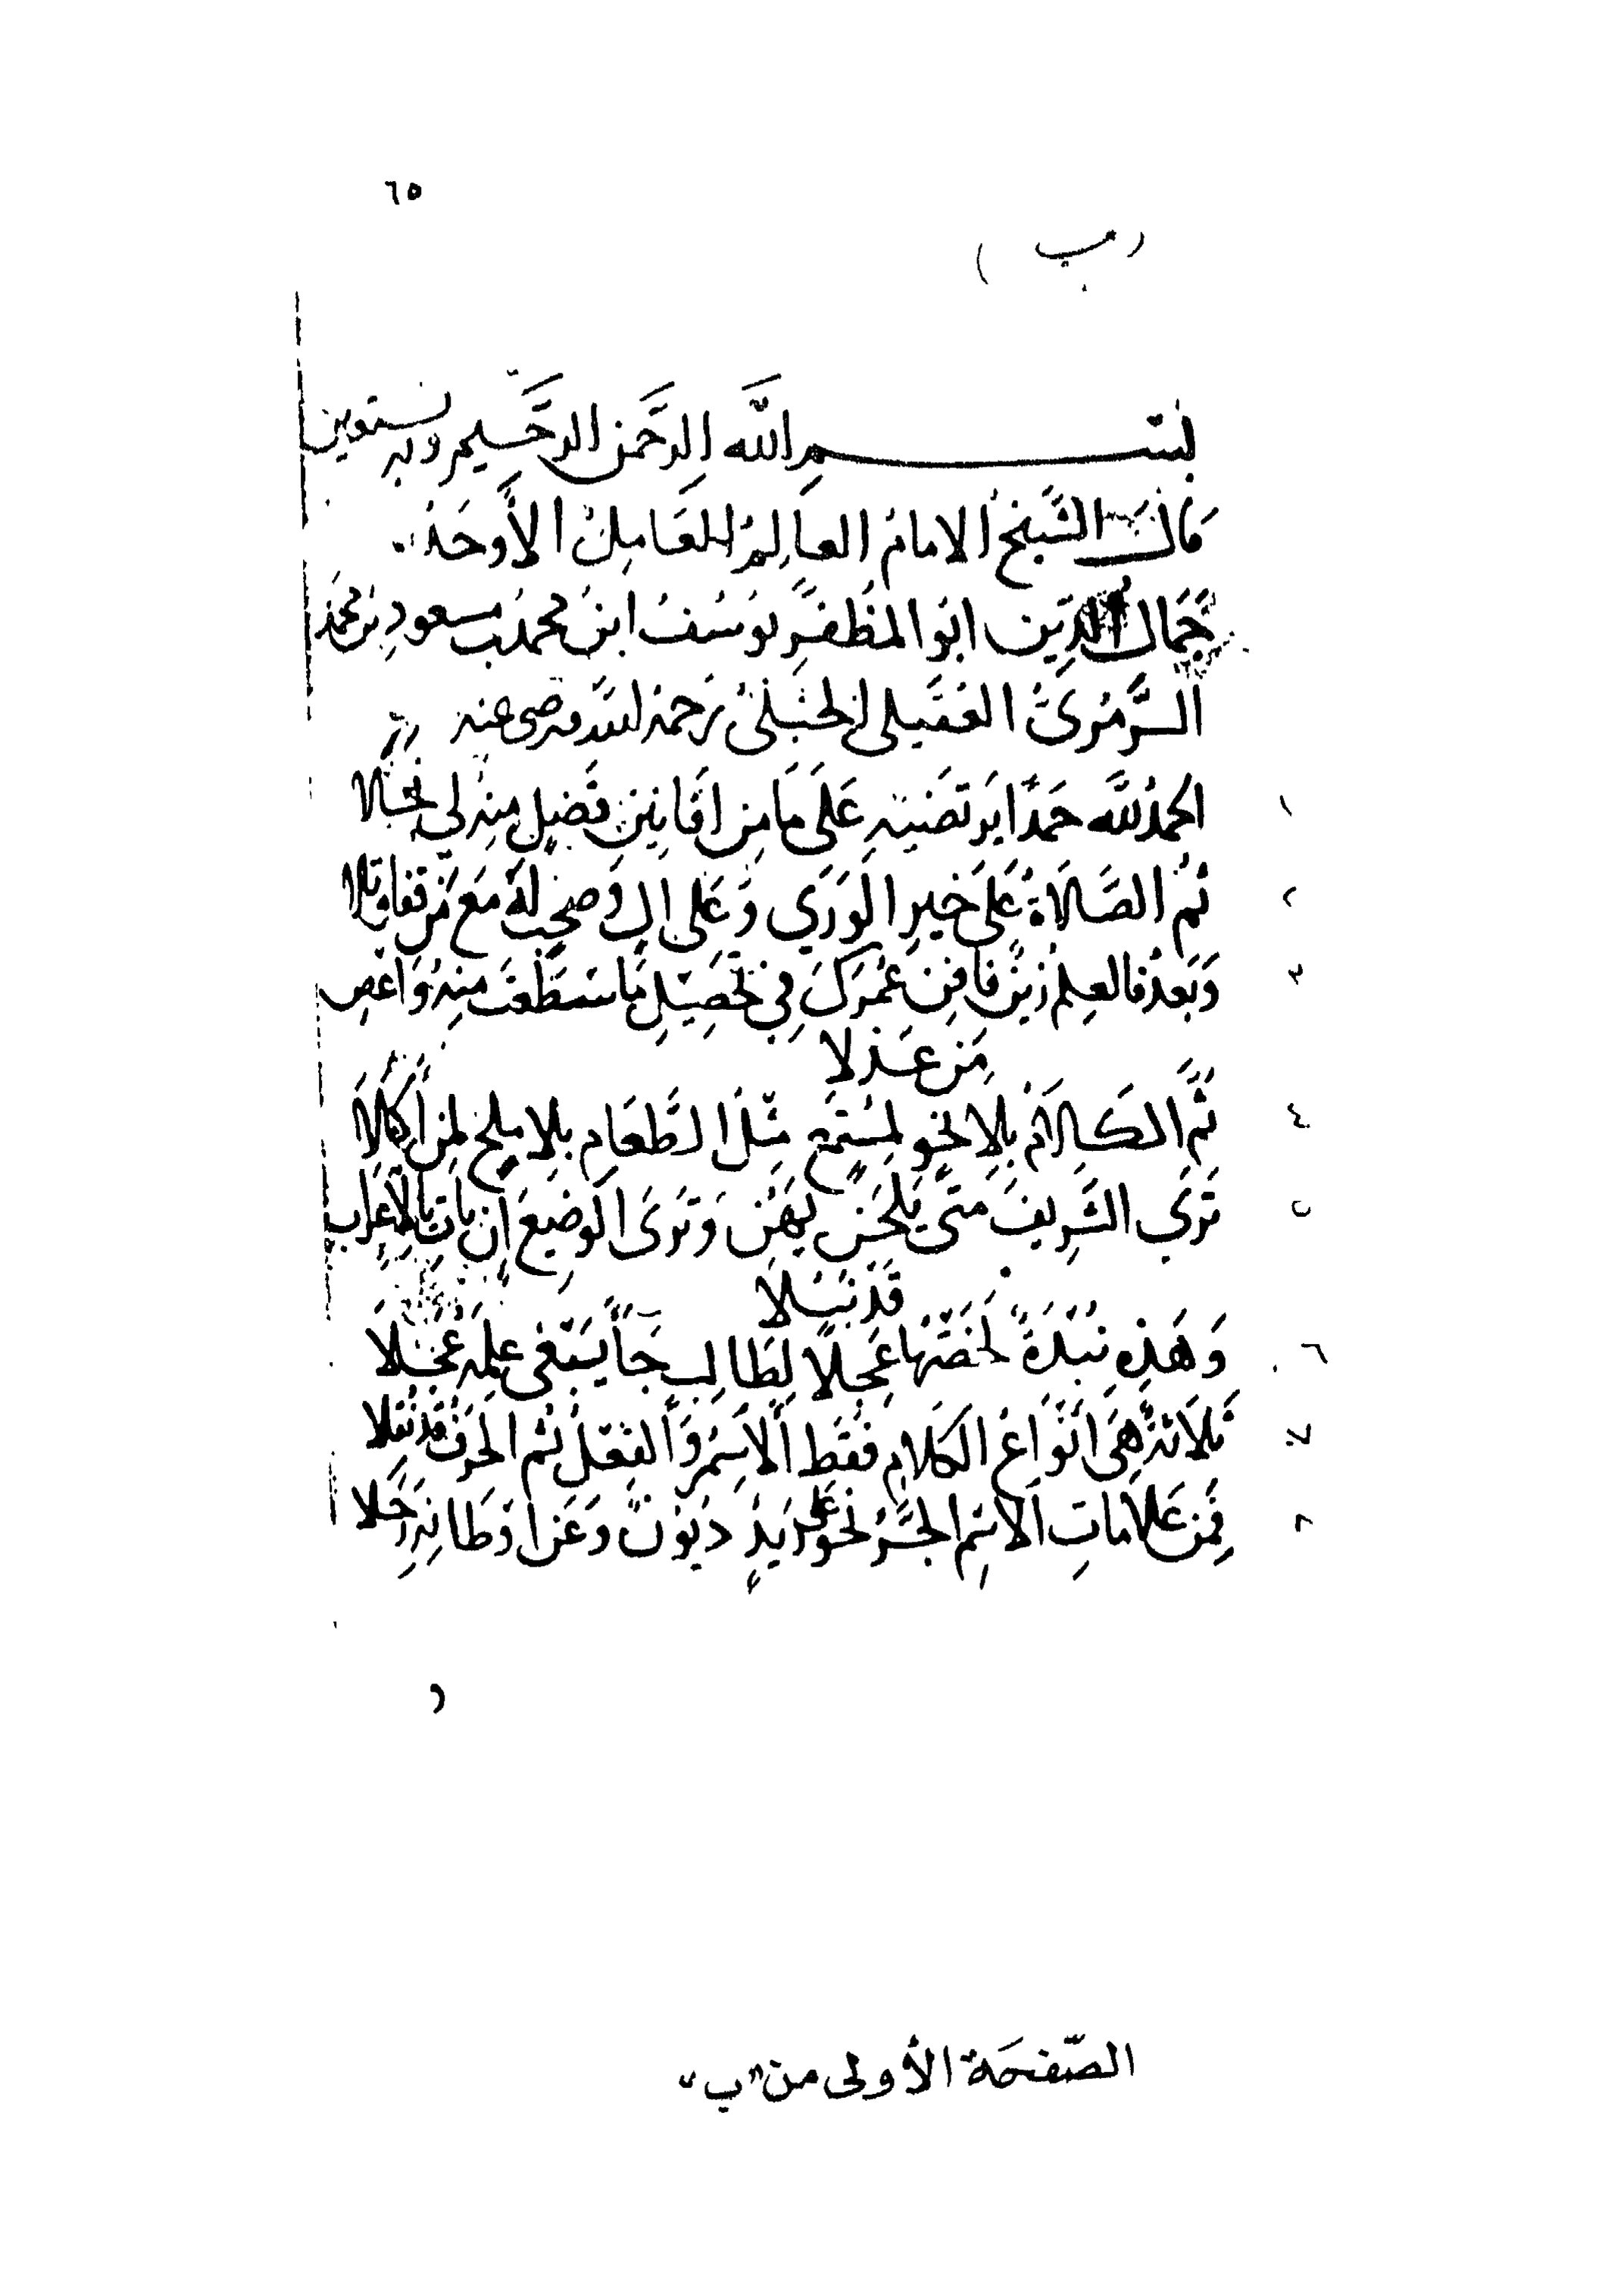 ٦٥
( ب )
بسم الله الرحمن الرحيم وبه نستعين
قال الشيخ الامام العالم العامل الأوحد
جمال الدين ابو المظفر يوسف ابن محمد بن مسعود بن محمد
السرمري العقيلي الحنبلي رحمه الله ورضي عنه
١ الحمد لله حمدا يرتضيه على ما من افانين فضل منه لي
٢ ثم الصلاة على خير الورى وعلى ال وصحب له مع من قفا وتلا
٣ وبعد فالعلم زين فافن عمرك في تحصيل ما سطعت منه واعص
من عذلا
٤ ثم الكلام بلا نحو لمستمع مثل الطعام بلا ملح لمن أكلا
٥ ترى الشريف متى يلحن يهن وترى الوضيع إن يات بالإعراب
قد نبلا
٦ وهذه نبذة لخصتها عجلا لطالب جا يبتغي علمه عجلا
٧ ثلاثة هي انواع الكلام فقط الاسم والفعل ثم الحرف قد نقلا
٨ فمن علامات الاسم الجر نحو على زيد ديون وعن اوطانه رحلا
الصفحة الأولى من "ب"